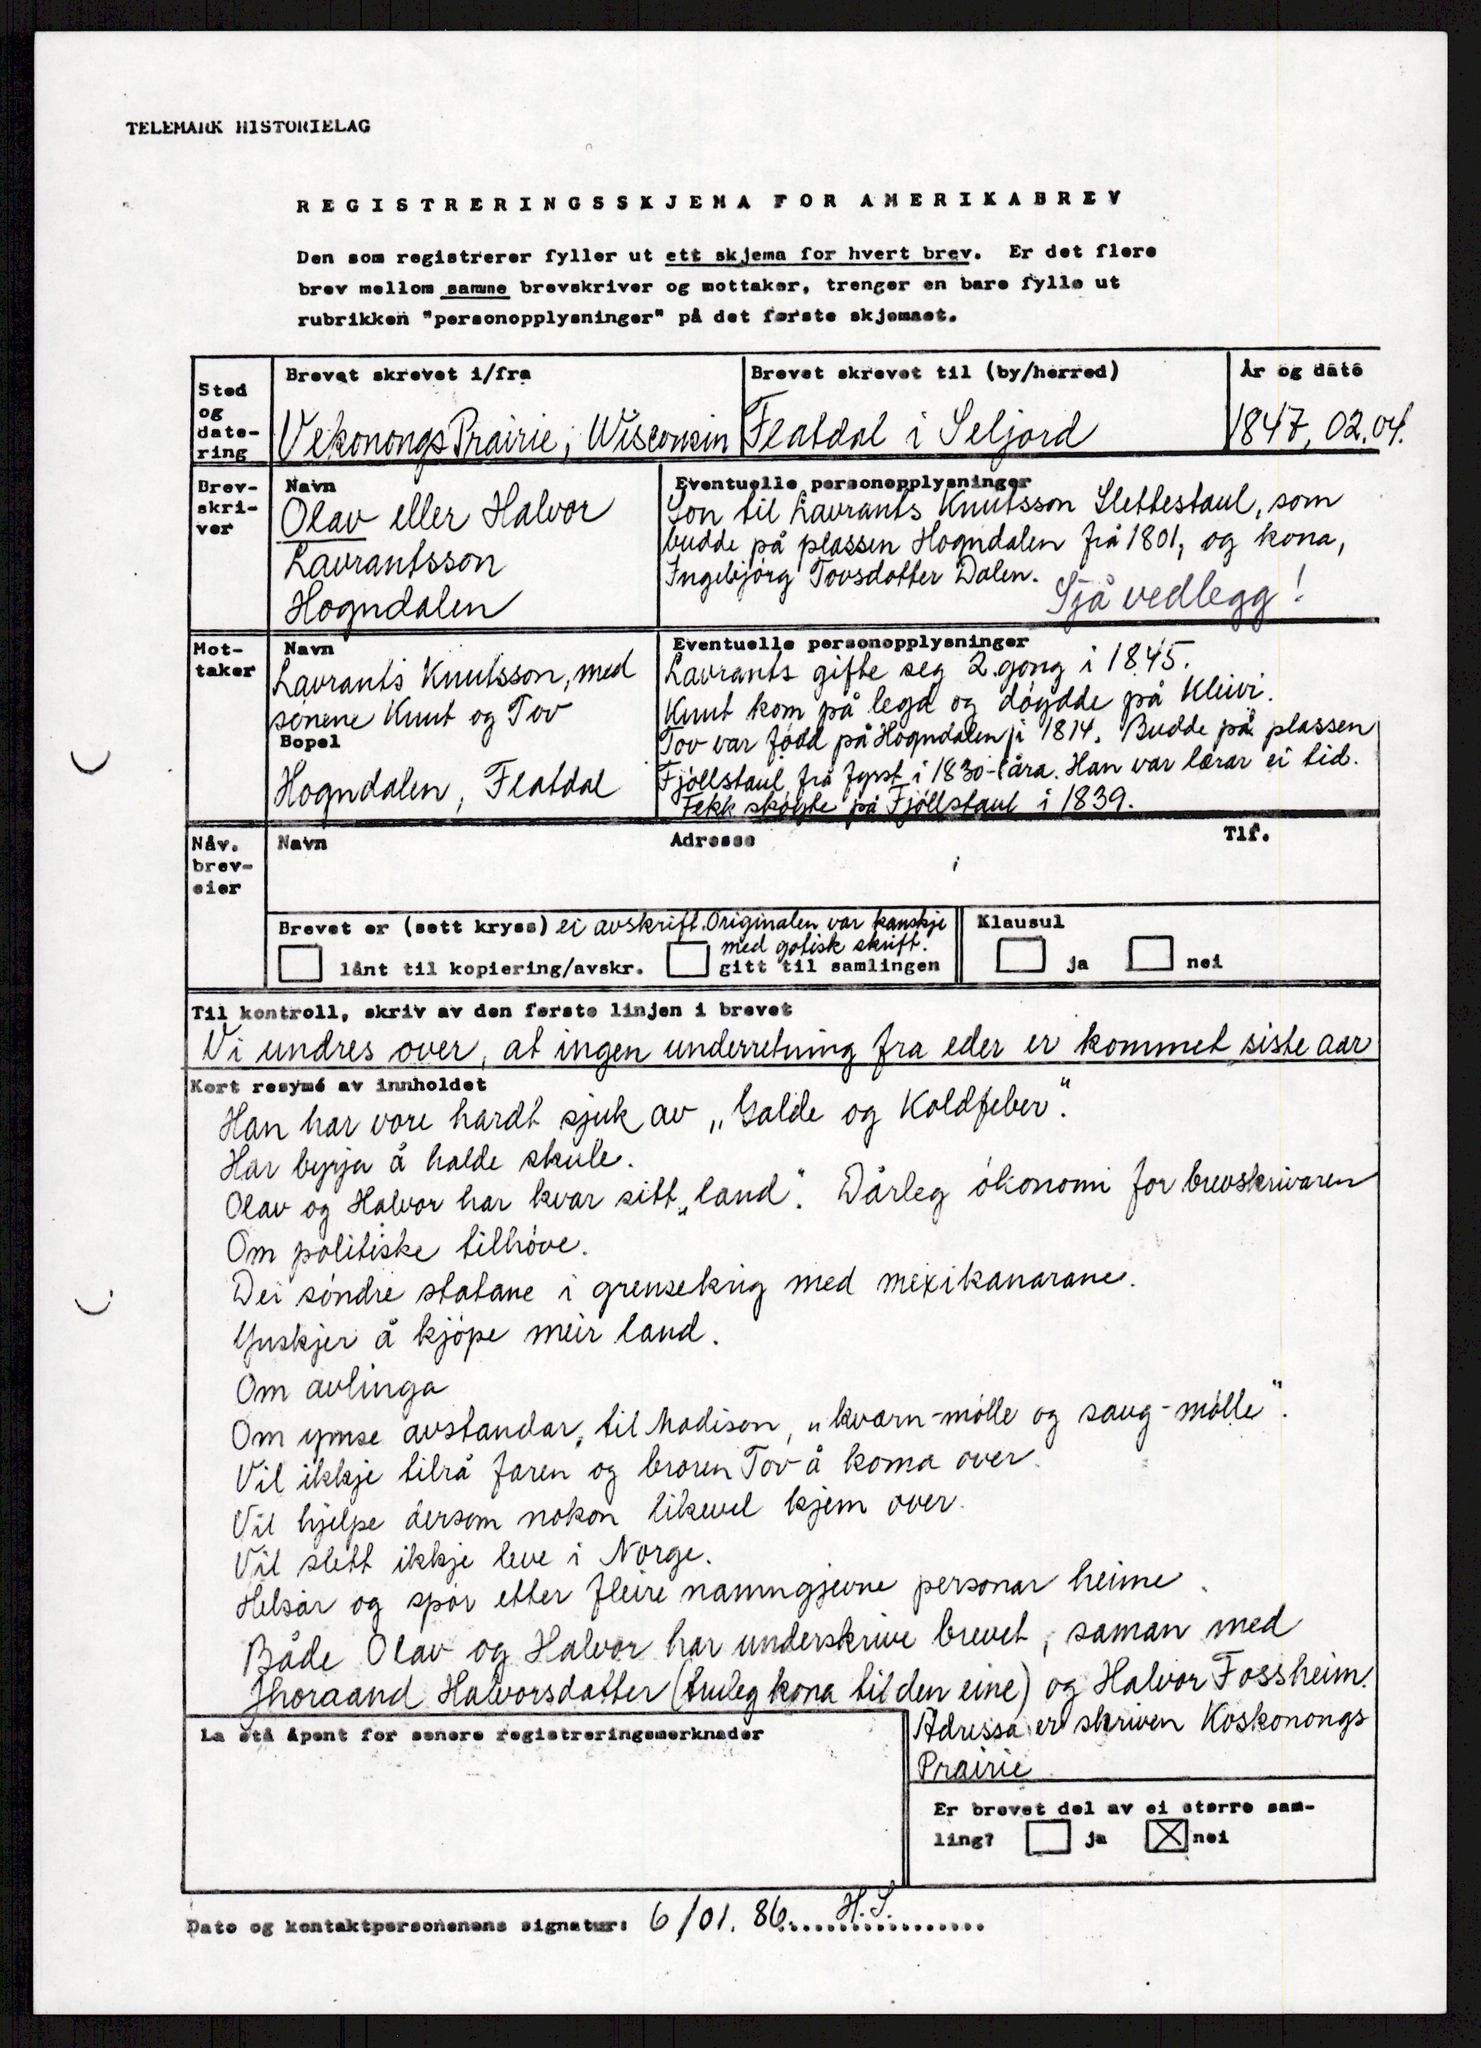 TELEMARK HISTORIELAG
REGISTRERINGSSKJEMA FOR AMERIKABREV
Den som registrerer fyller ut ett skjema for hvert brev. Er det flere
brev mellom samme brevskriver og mottaker, trenger en bare fylle ut
rubrikken "personopplysninger" på det første skjemaet.
Sted og date-ring
Brevet skrevet i/fra
Vekonongs Prairie, Wisconsin
Brevet skrevet til (by/herred)
Flatdal i Seljord
År og dato
1847, 02.04.
Brev-
skri-
ver
Navn
Olav eller Halvor
Lavrantsson
Hogndalen
Eventuelle personopplysninger
Son til Lavrants Knutsson Slettestaul, som
budde på plassen Hogndalen frå 1801, og kona,
Ingebjørg Tovsdotter Dalen.
Sjå vedlegg!
Mot-
taker
Navn
Lavrants Knutsson, med
sønene Knut og Tov
Bopel
Hogndalen, Flatdal
Eventuelle personopplysninger
Lavrants gifte seg 2. gong i 1845.
Knut kom på legd og døydde på Kleivi.
Tov var fødd på Hogndalen i 1814. Budde på plassen
Fjøllstaul frå fyrst i 1830-åra. Han var lærar ei tid.
Fekk skøyte på Fjøllstaul i 1839.
Nåv.
brev-
eier
Navn
Adresse
Tlf.
Brevet er (sett kryss) ei avskrift. Originalen var kanskje
med gotisk skrift.
lånt til kopiering/avskr.
gitt til samlingen
Klausul
ja
nei
Til kontroll, skriv av den første linjen i brevet
Vi undres over, at ingen underretning fra eder er kommet siste aar
Kort resymé av innholdet
Han har vore hardt sjuk av „Galde og Koldfeber".
Har byrja å halde skule.
Olav og Halvor har kvar sitt „land". Dårleg økonomi for brevskrivaren
Om politiske tilhøve.
Dei søndre statane i grensekrig med mexikanarane.
Ynskjer å kjøpe meir land.
Om avlinga
Om ymse avstandar, til Madison, „kværn-mølle og saug-mølle".
Vil ikkje tilrå faren og broren Tov å koma over.
Vil hjelpe dersom nokon likevel kjem over.
Vil slett ikkje leve i Norge.
Helsar og spør etter fleire namngjevne personar heime.
Både Olav og Halvor har underskrive brevet, saman med
Thoraand Halvorsdatter (truleg kona til den eine) og Halvor Fossheim.
Adressa er skriven Koskonongs
Prairie
La stå åpent for senere registreringsmerknader
Er brevet del av ei større sam-
ling? ja nei
Dato og kontaktpersonenens signatur: 6/01.86 H.S.